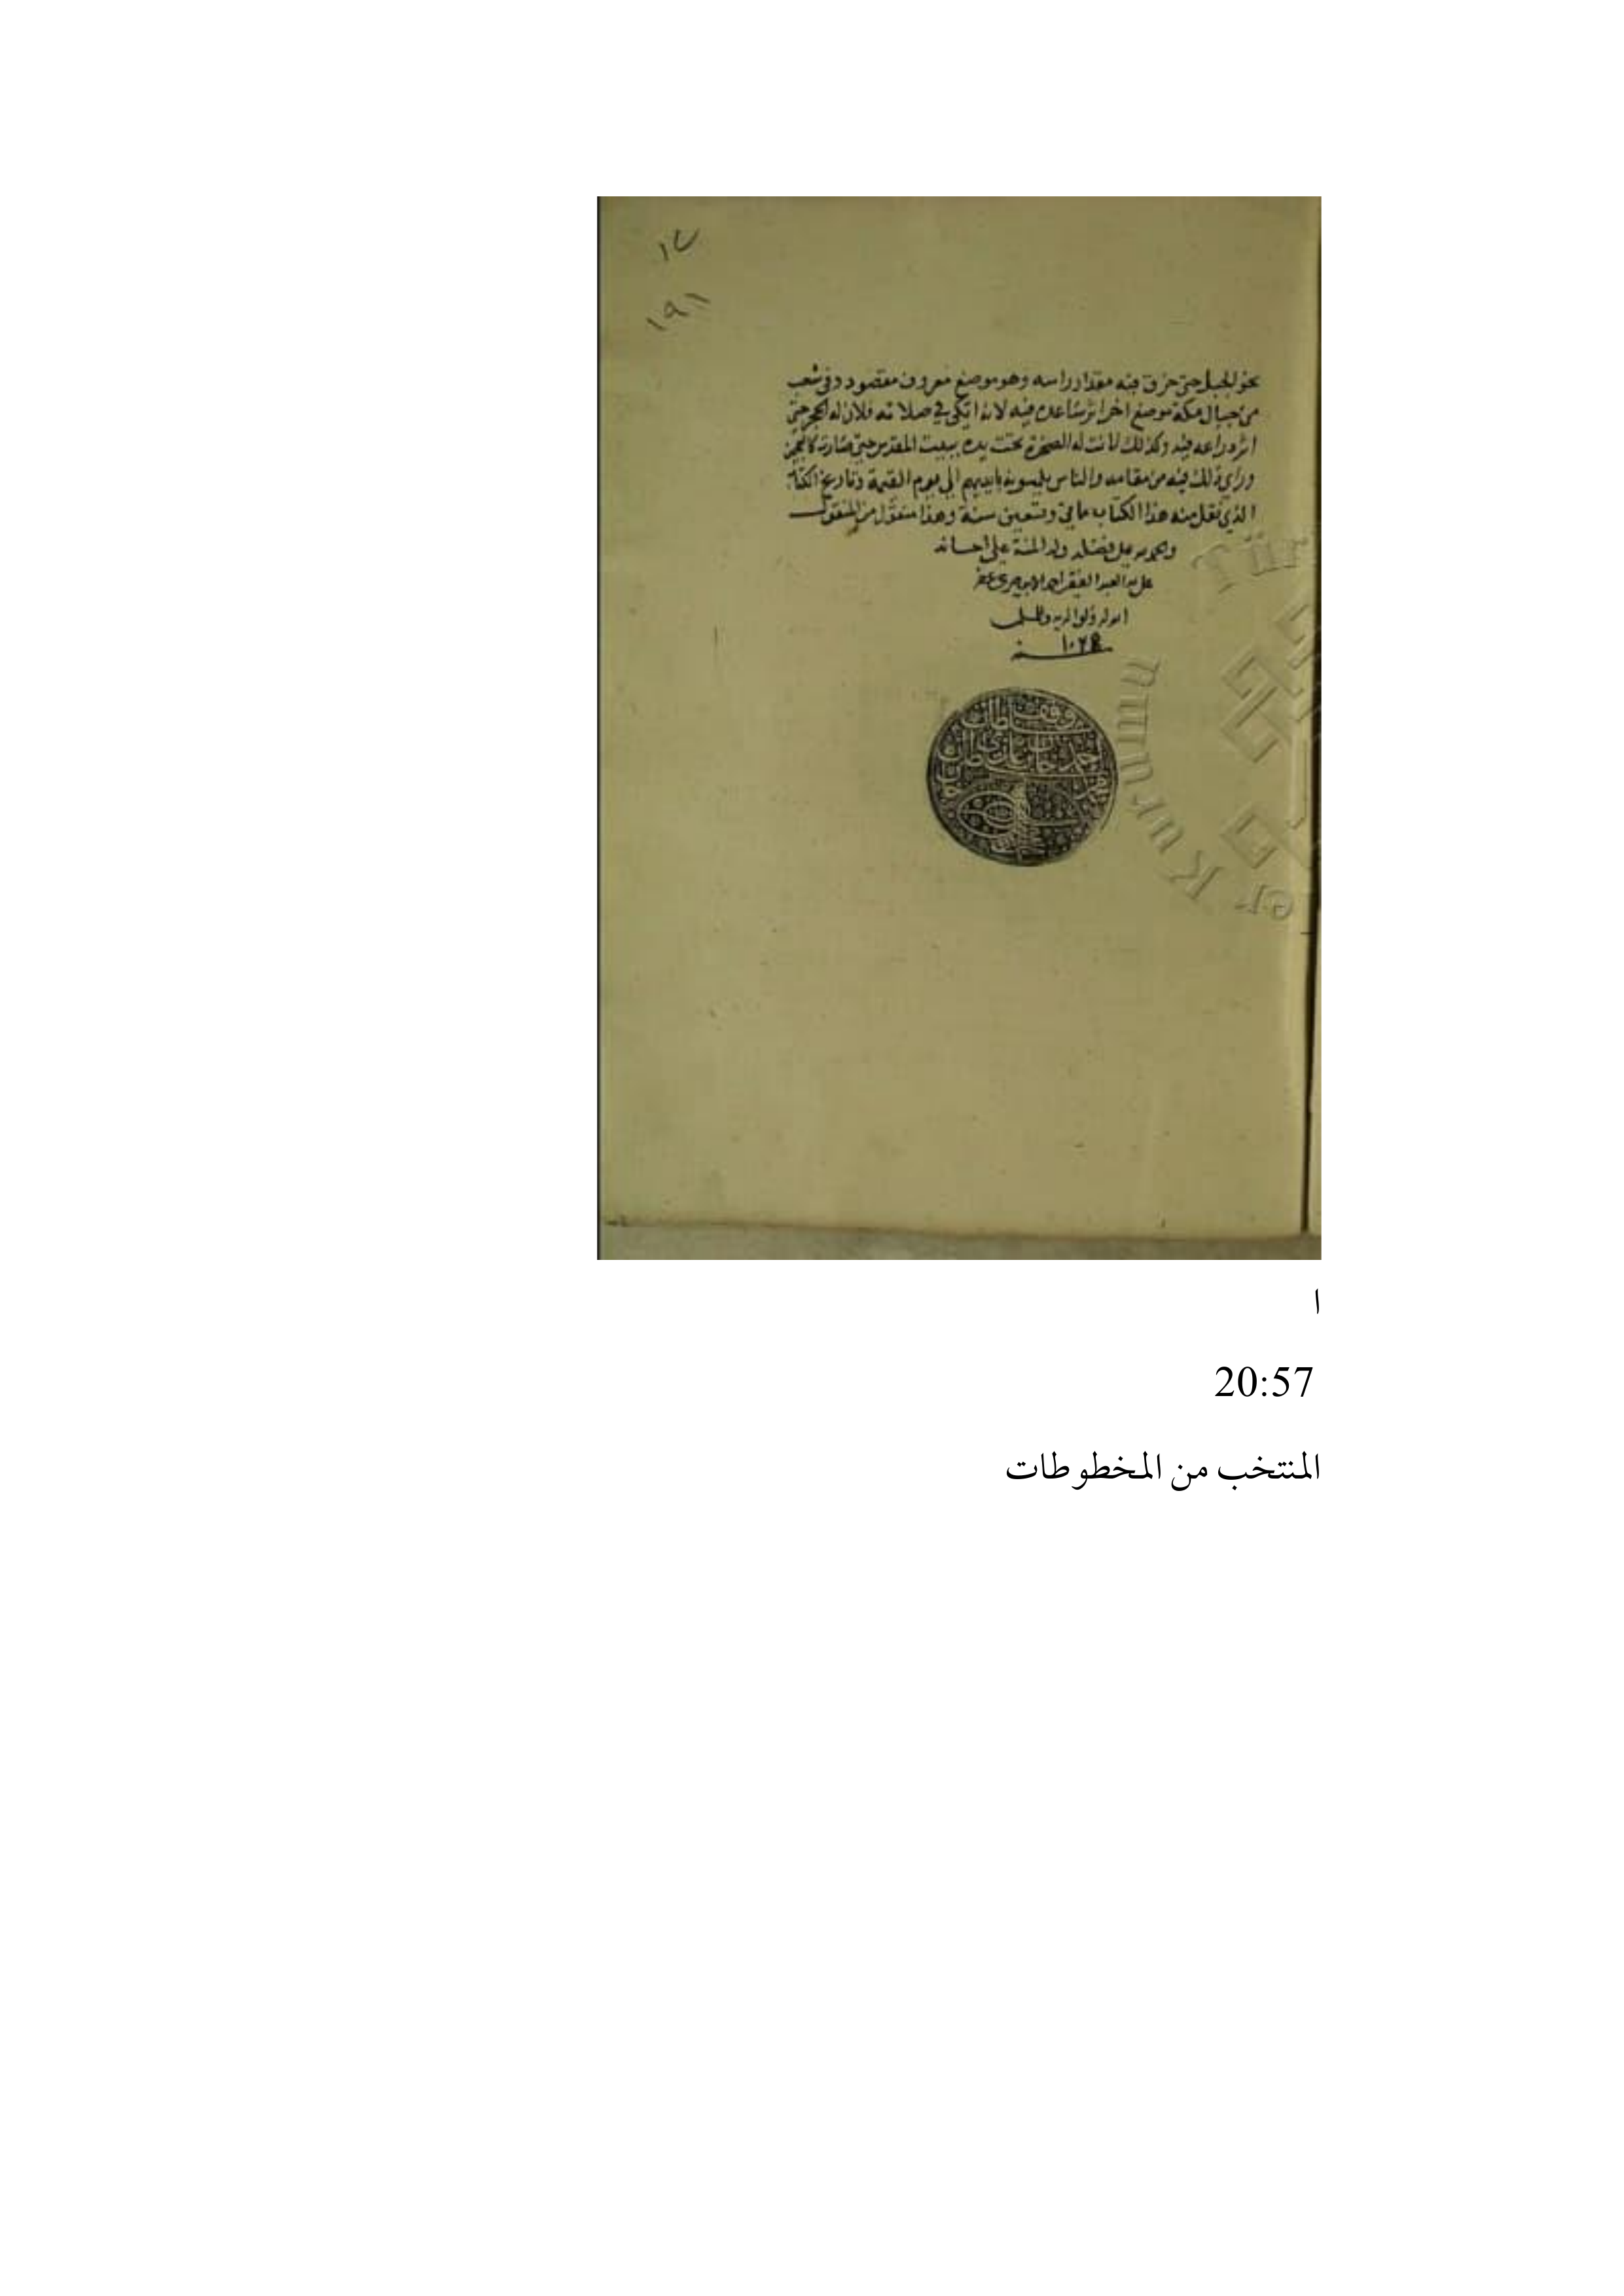 ١٧
١٩١
نحو الجبل حتى خرق فيه مقدار راسه وهو موضع معروف مقصود وفى شعب
من جبال مكة موضع اخر اثر ساعده فيه لانه اتكى فى صلاته فلان له الحجر حتى
اثر ذراعه فيه وكذلك لانت له الصخرة تحت يده ببيت المقدس حتى صارت كالعجين
وراى ذلك فيه من مقامه والناس يلمسونه بايديهم الى يوم القيمة وتاريخ الكتاب
الذى نقل منه هذا الكتاب مامى وتسعين سنة وهذا منقول من المنقول
والحمد لله على فضله وله المنة على احسانه
على يد العبد الفقير احمد
الله له ولوالديه
سنة
وقف سلطان
احمد خان غازى سلطان
Kurumu
ا
20:57
المنتخب من المخطوطات